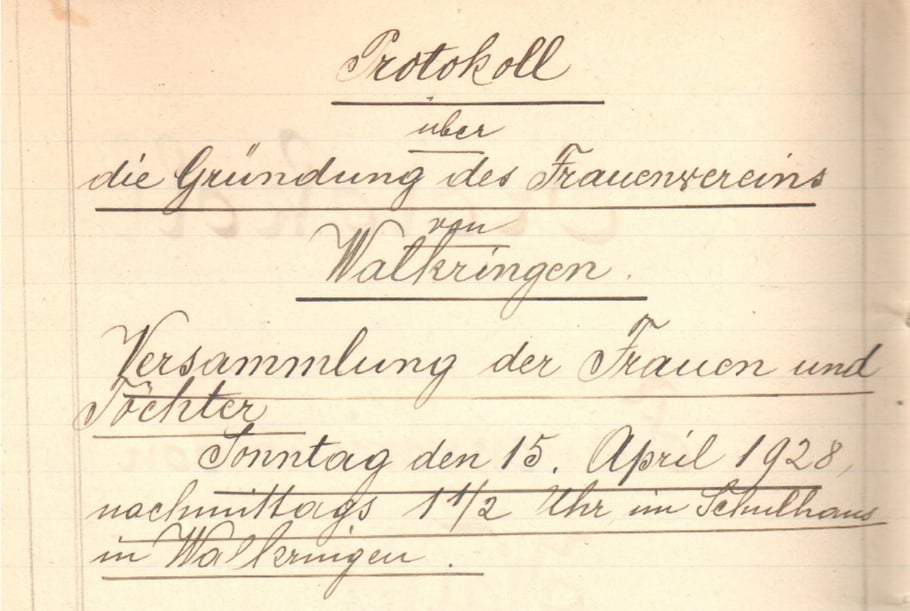 Protokoll
über
die Gründung des Frauenvereins
von
Walkringen.
Versammlung der Frauen und
Töchter
Sonntag den 15. April 1928,
nachmittags 1 1/2 Uhr im Schulhaus
in Walkringen.